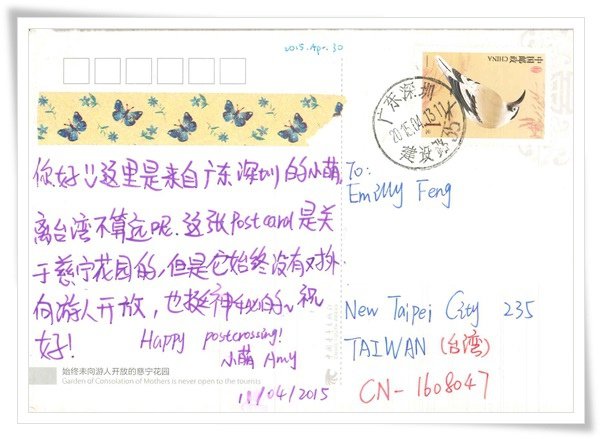 2015. Apr. 30
中国邮政 CHINA
广东深圳
2015.04.13.11
建设路
你好!这里是来自广东深圳的的小萌,
离台湾不算远呢.这张Postcard是关
于慈宁花园的,但是它始终没有对外
向游人开放,也挺神秘的~祝
好!
Happy postcrossing!
小萌 Amy
11/04/2015
To:
Emilly Feng
New Taipei City 235
TAIWAN (台湾)
CN-1608047
始终未向游人开放的慈宁花园
Garden of Consolation of Mothers is never open to the tourists